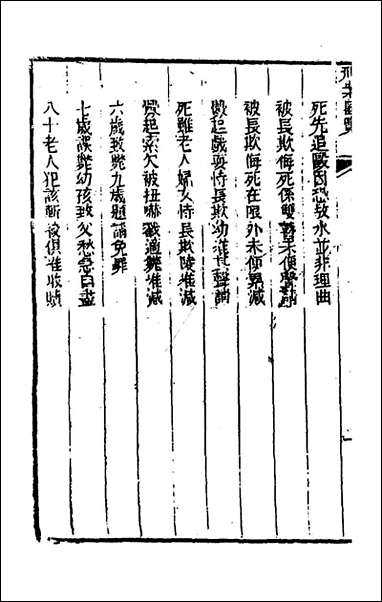 刑案匯覽
死先追毆因恐致水並非理曲
被長欺侮死係雙瞽未便聲請
被長欺侮死在限外未便累減
釁起戲耍恃長欺幼准其聲請
死雖老人婦女恃長欺陵准減
釁起索欠被扭嚇戳適斃准減
六歲致斃九歲題請免罪
七歲誤斃幼孩致父愁急自盡
八十老人犯該斬絞俱准收贖